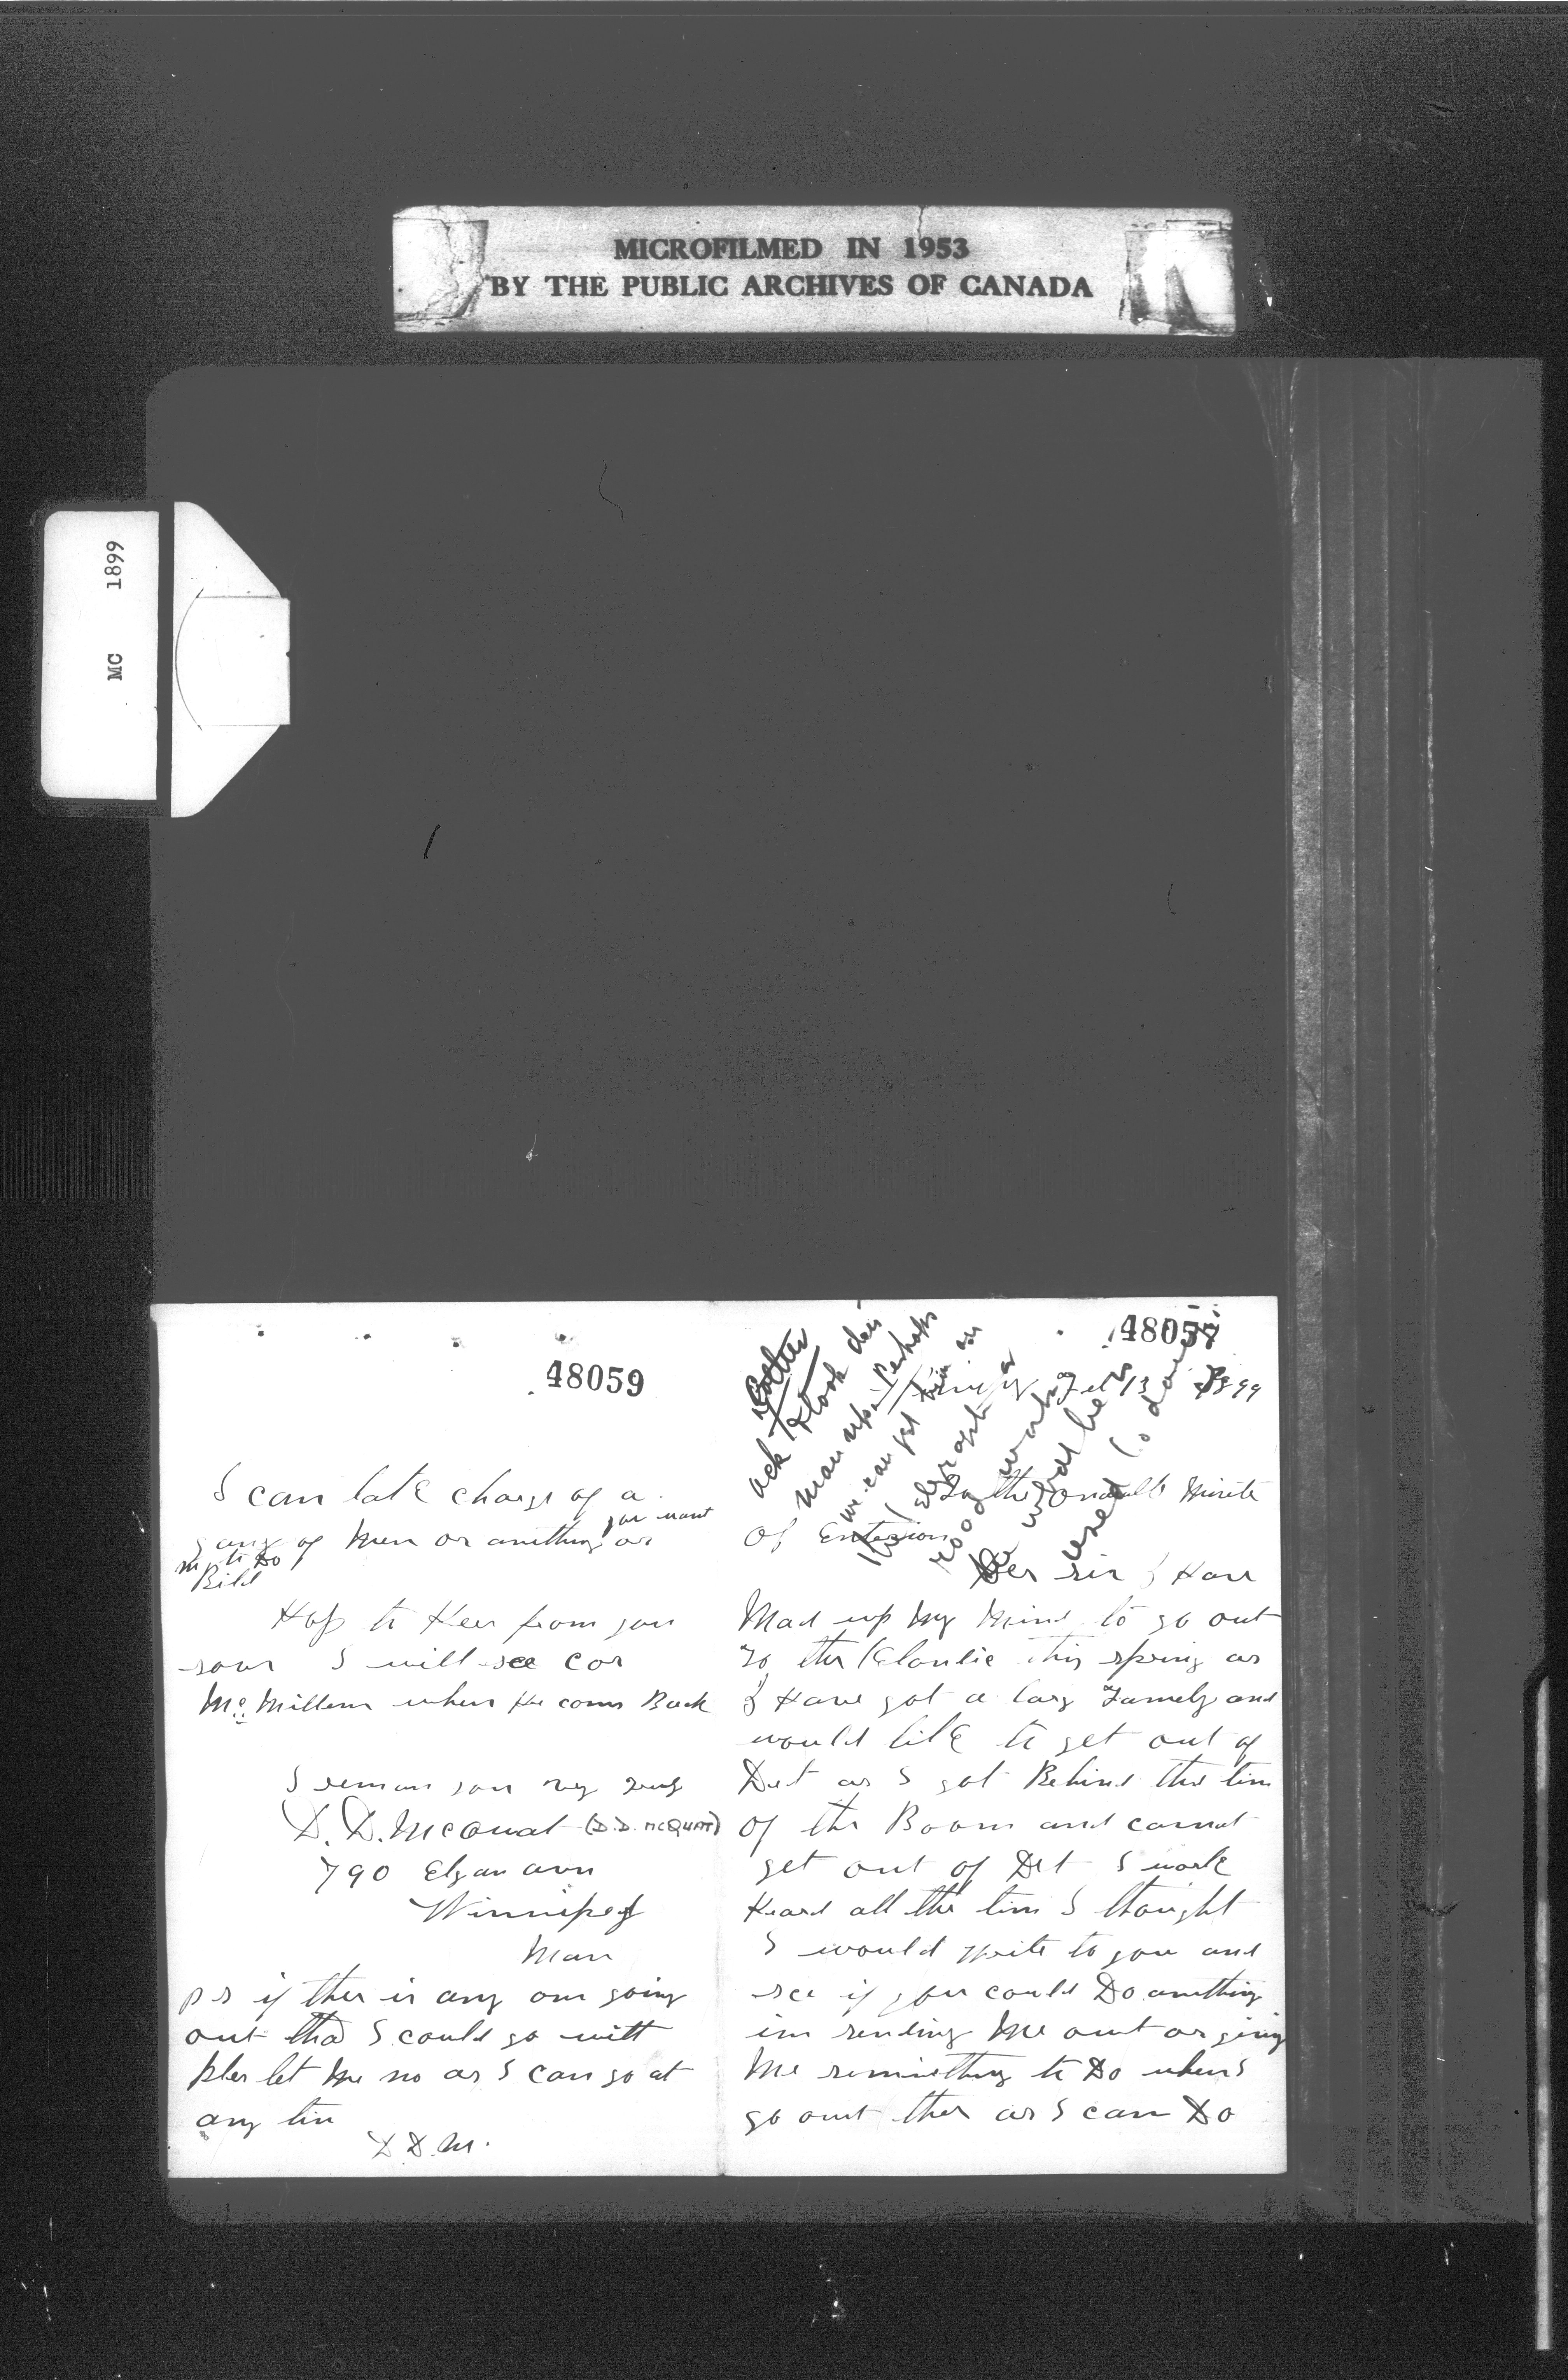 MICROFILMED IN 1953
BY THE PUBLIC ARCHIVES OF CANADA
MC 1899
48059
I can take charge of a
gang of Men or anything as you want
m to Do
Bild
Hop to Heer from you
soun I will see Cor
Mc Millem when He coms Back
I reman you
D. D. McQuat (D.D. MCQUAT)
790 Elgan avn
Winnipeg
Man
p s if ther is any on going
out that I could go witt
ples let Me no as I can go at
any tim
D. D. M.
48057
Feb 13 1899
ack & look
man up. Perhaps
we can get him on
road work
he used to do
To the Onarble Minite
Of Enterion
Der sir I Have
Mad up My Mind to go out
To the Klonlie this spring as
I Have got a larg Famely and
would like to get out of
Det as I got Behind the tim
Of the Boom and cannot
get out of Det I work
Heard all the tim I thought
I would write to you and
see if you could Do anything
im sending Me out or giving
Me somietthing to Do when I
go out ther as I can Do